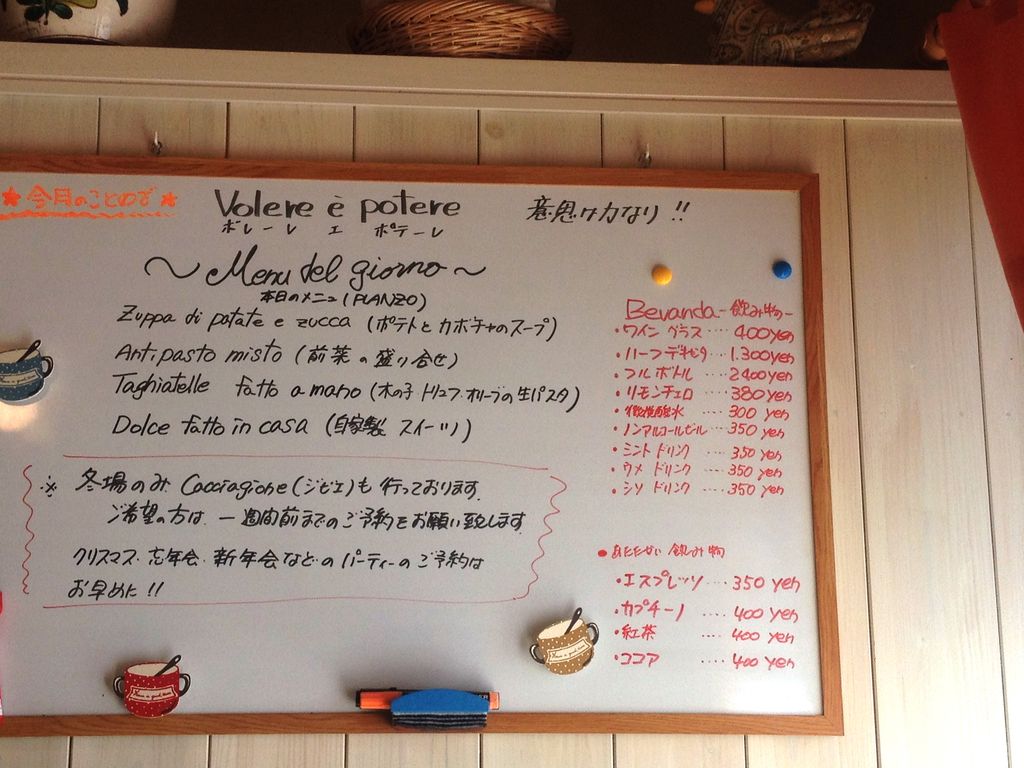 ★今月のことわざ★
Volere è potere
ボレーレ エ ポテーレ
意思は力なり!!
~Menu del giorno~
本日のメニュー(PLANZO)
Zuppa di patate e zucca (ポテトとカボチャのスープ)
Antipasto misto (前菜の盛り合せ)
Tagliatelle fatto a mano (木の子トリュフオリーブの生パスタ)
Dolce fatto in casa (自家製スイーツ)
※ 冬場のみ Cacciagione(ジビエ)も行っております。
ご希望の方は、一週間前までのご予約をお願い致します
クリスマス、忘年会、新年会などのパーティーのご予約は
お早めに!!
Bevanda-飲み物-
・ワイン グラス ‥‥ 400yen
・ハーフデキャンタ‥‥1.300yen
・フルボトル ‥‥ 2400yen
・リモンチェロ ‥‥ 380yen
・微炭酸水 ‥‥ 300 yen
・ノンアルコールビール‥‥350 yen
・ミントドリンク ‥‥350 yen
・ウメドリンク ‥‥350 yen
・シソドリンク ‥‥350 yen
●あたたかい飲み物
・エスプレッソ‥‥350 yen
・カプチーノ ‥‥ 400 yen
・紅茶 ‥‥ 400 yen
・ココア ‥‥ 400 yen